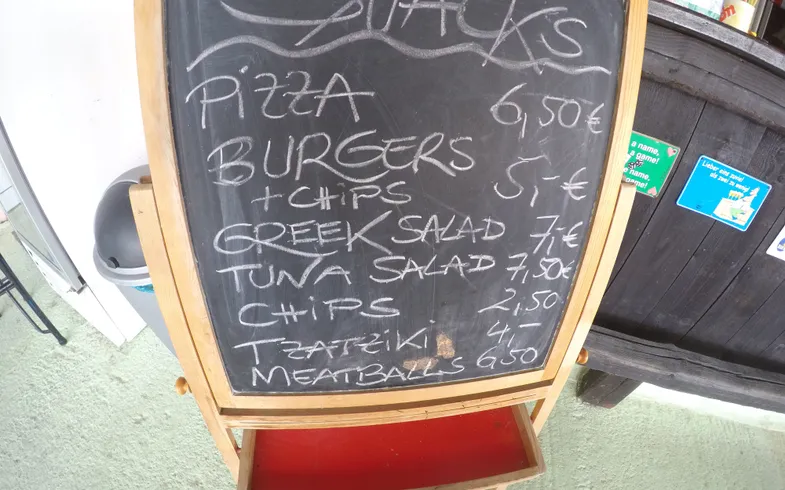 SNACKS
PiZZA 6,50€
BURGERS
+ CHiPS 5,-€
GREEK SALAD 7,-€
TUNA SALAD 7,50€
CHiPS 2,50
TZATZiKi 4,-
MEATBALLS 6,50
a name,
a game!
name,
game!
Lieber eine spini